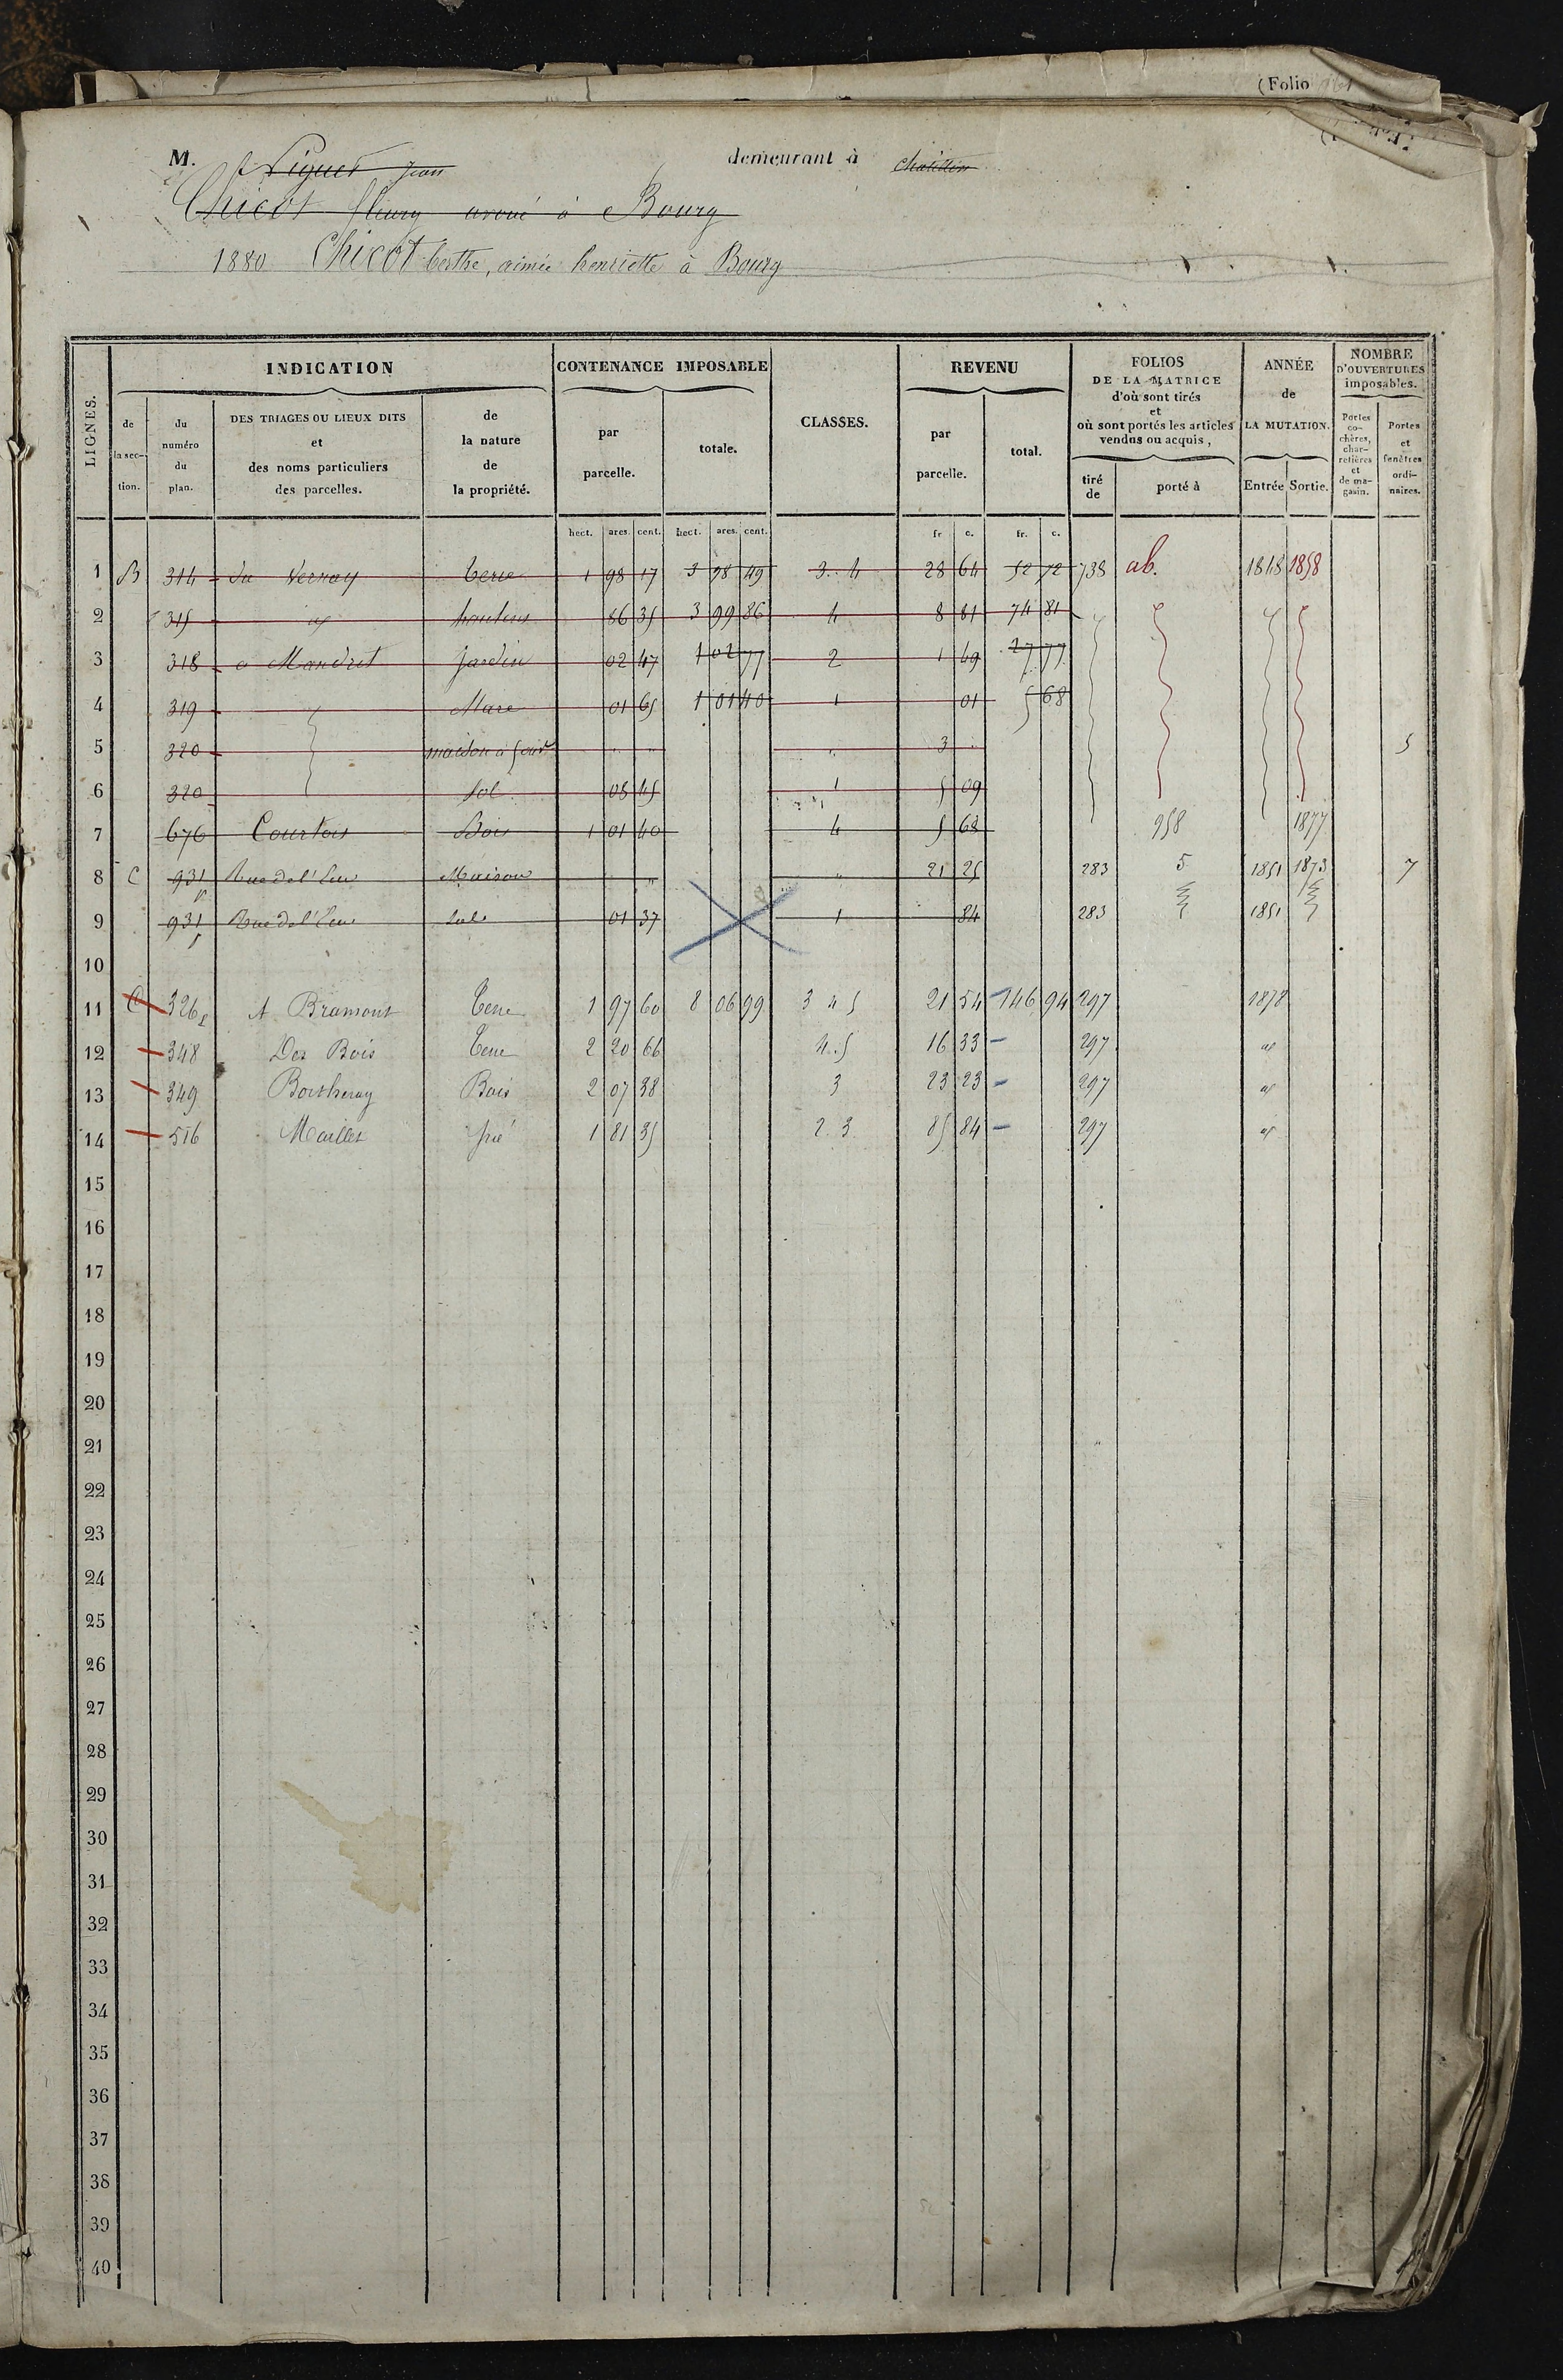 (Folio
M. Piguet Jean demeurant à Chatillon
Chicot fleury avoué à Bourg
1880 Chicot berthe, aimée henriette à Bourg
LIGNES.
INDICATION
CONTENANCE IMPOSABLE
CLASSES.
REVENU
FOLIOS DE LA MATRICE d'où sont tirés et où sont portés les articles vendus ou acquis,
ANNÉE de LA MUTATION.
NOMBRE D'OUVERTURES imposables.
de la section.
du numéro du plan.
DES TRIAGES OU LIEUX DITS et des noms particuliers des parcelles.
de la nature de la propriété.
par parcelle.
totale.
par parcelle.
total.
tiré de
porté à
Entrée
Sortie.
Portes cochères, charretières et de magasin.
Portes et fenêtres ordinaires.
hect. ares. cent. hect. ares. cent. fr. c. fr. c.
1 B 314 du Vernay terre 1 98 17 3 98 49 3. 4 28 64 52 72 738 ab. 1848 1858
2 315 hautins 86 35 3 99 86 4 8 81 74 81
3 318 a Mandret Jardin 02 47 1 02 77 2 1 49 27 77
4 319 Mare 01 65 1 01 40 1 01 5 68
5 320 maison à four " " " 3 " 5
6 320 Sol 08 45 1 5 09
7 676 Courtois Bois 1 01 40 4 5 68 958 1877
8 C 931 p Rue de l' Maison " " 21 25 283 5 1851 1873 7
9 931 p Rue de l' Sol 01 37 1 84 283 1851
10
11 C 326 A Bramont Terre 1 97 60 8 06 99 3 4 5 21 54 146 94 297 1878
12 348 Des Bois Terre 2 20 66 4. 5 16 33 297
13 349 Bois 2 07 38 3 23 23 297
14 516 Maillet pré 1 81 35 2. 3 85 84 297
15
16
17
18
19
20
21
22
23
24
25
26
27
28
29
30
31
32
33
34
35
36
37
38
39
40